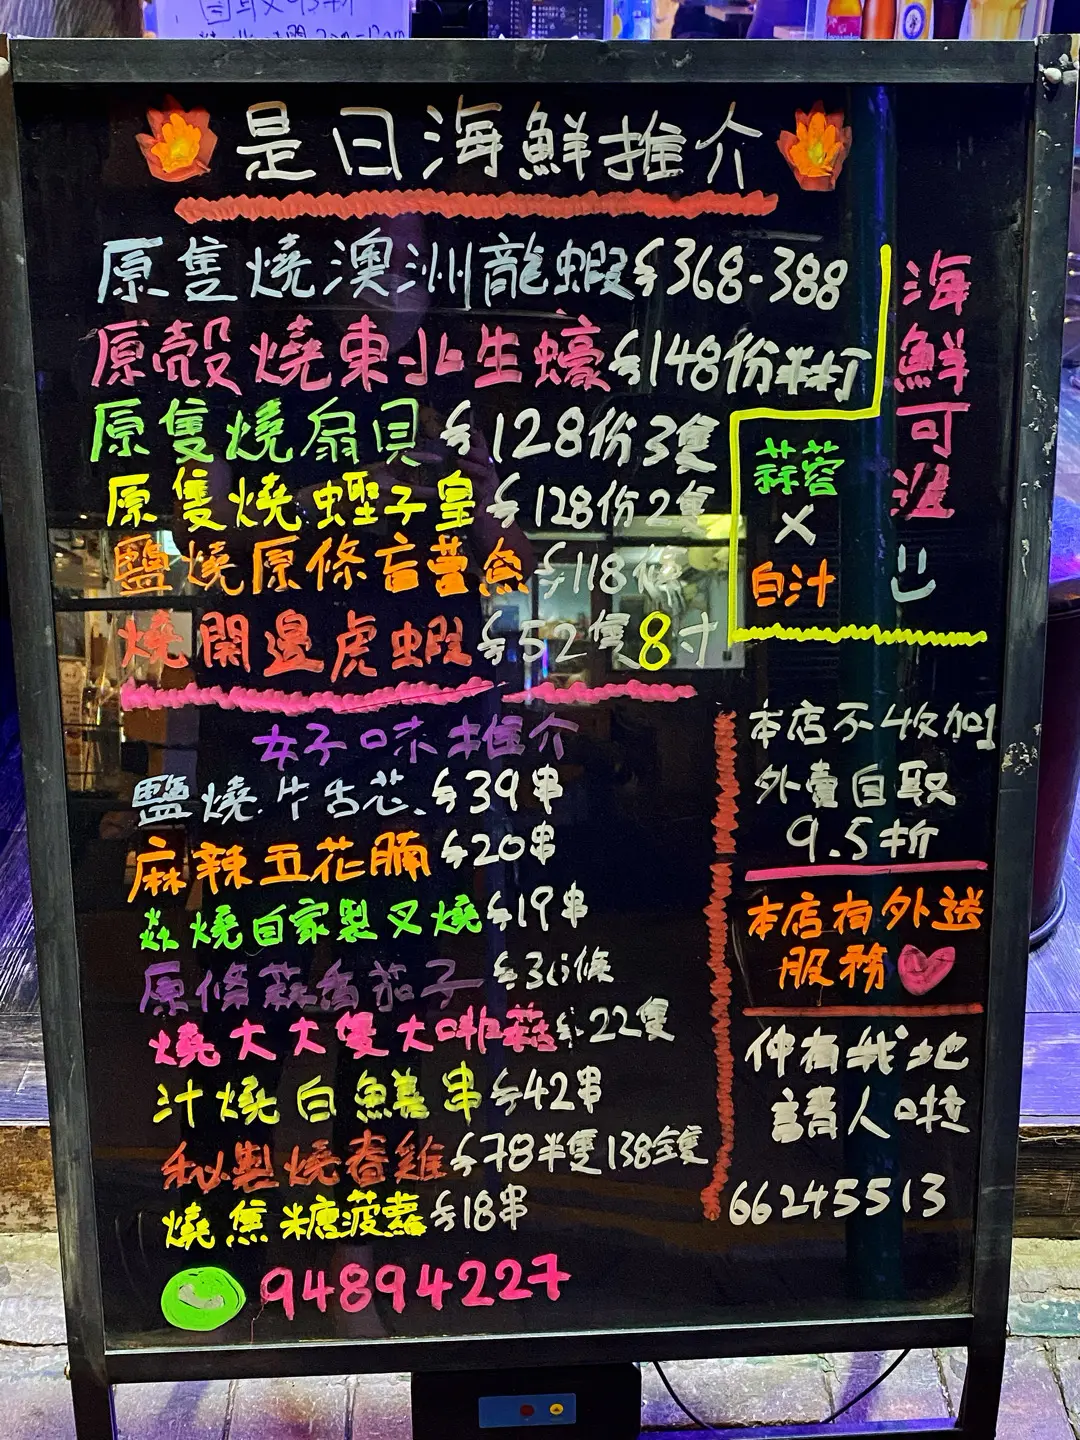 是日海鮮推介
原隻燒澳洲龍蝦$368-388
原殼燒東北生蠔$148份半打
原隻燒扇貝$128份3隻
原隻燒蟶子皇$128份2隻
鹽燒原條盲曹魚$118條
燒開邊虎蝦$52隻8寸
海鮮可選
蒜蓉
X
白汁
好味推介
鹽燒牛舌芯$39串
麻辣五花腩$20串
燚燒自家製叉燒$19串
原條蒜香茄子$36條
燒大大隻大啡菇$22隻
汁燒白鱔串$42串
秘製燒春雞$78半隻138全隻
燒焦糖菠蘿$18串
94894227
本店不收加1
外賣自取
9.5折
本店有外送
服務
仲有我地
請人啦
66245513